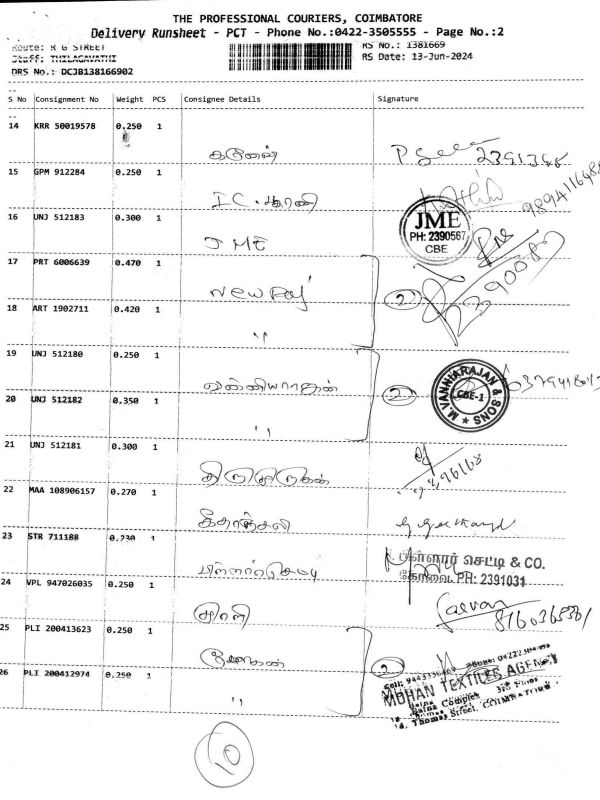 THE PROFESSIONAL COURIERS, COIMBATORE
Delivery Runsheet - PCT - Phone No.:0422-3505555 - Page No.:2
Route: R G STREET
RS No.: 1381669
Staff: THILAGAVATHI
RS Date: 13-Jun-2024
DRS No.: DCJB138166902
S No Consignment No Weight PCS Consignee Details Signature
14 KRR 50019578 0.250 1
2391348
15 GPM 912284 0.250 1
16 UNJ 512183 0.300 1
JME
JME
PH: 2390567
CBE
17 PRT 6006639 0.470 1
2
18 ART 1902711 0.420 1
"
19 UNJ 512180 0.250 1
வன்னியராஜன்
2
M. VANNIARAJAN & SONS
CBE-1
20 UNJ 512182 0.350 1
"
21 UNJ 512181 0.300 1
திருமுருகன்
22 MAA 108906157 0.270 1
கீதாஞ்சலி
23 STR 711188 0.230 1
செட்டி & CO.
கோவை. PH: 2391031
24 VPL 947026035 0.250 1
25 PLI 200413623 0.250 1
மோகன்
2
26 PLI 200412974 0.250 1
"
MOHAN TEXTILES AGENCY
Raina Complex
Thomas Street, COIMBATORE
10